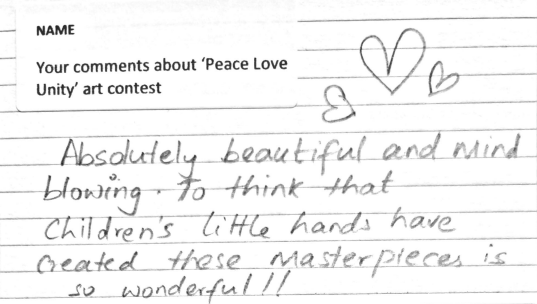 NAME
Your comments about ‘Peace Love
Unity’ art contest
Absolutely beautiful and mind
blowing. To think that
Children's little hands have
Created these masterpieces is
so wonderful!!